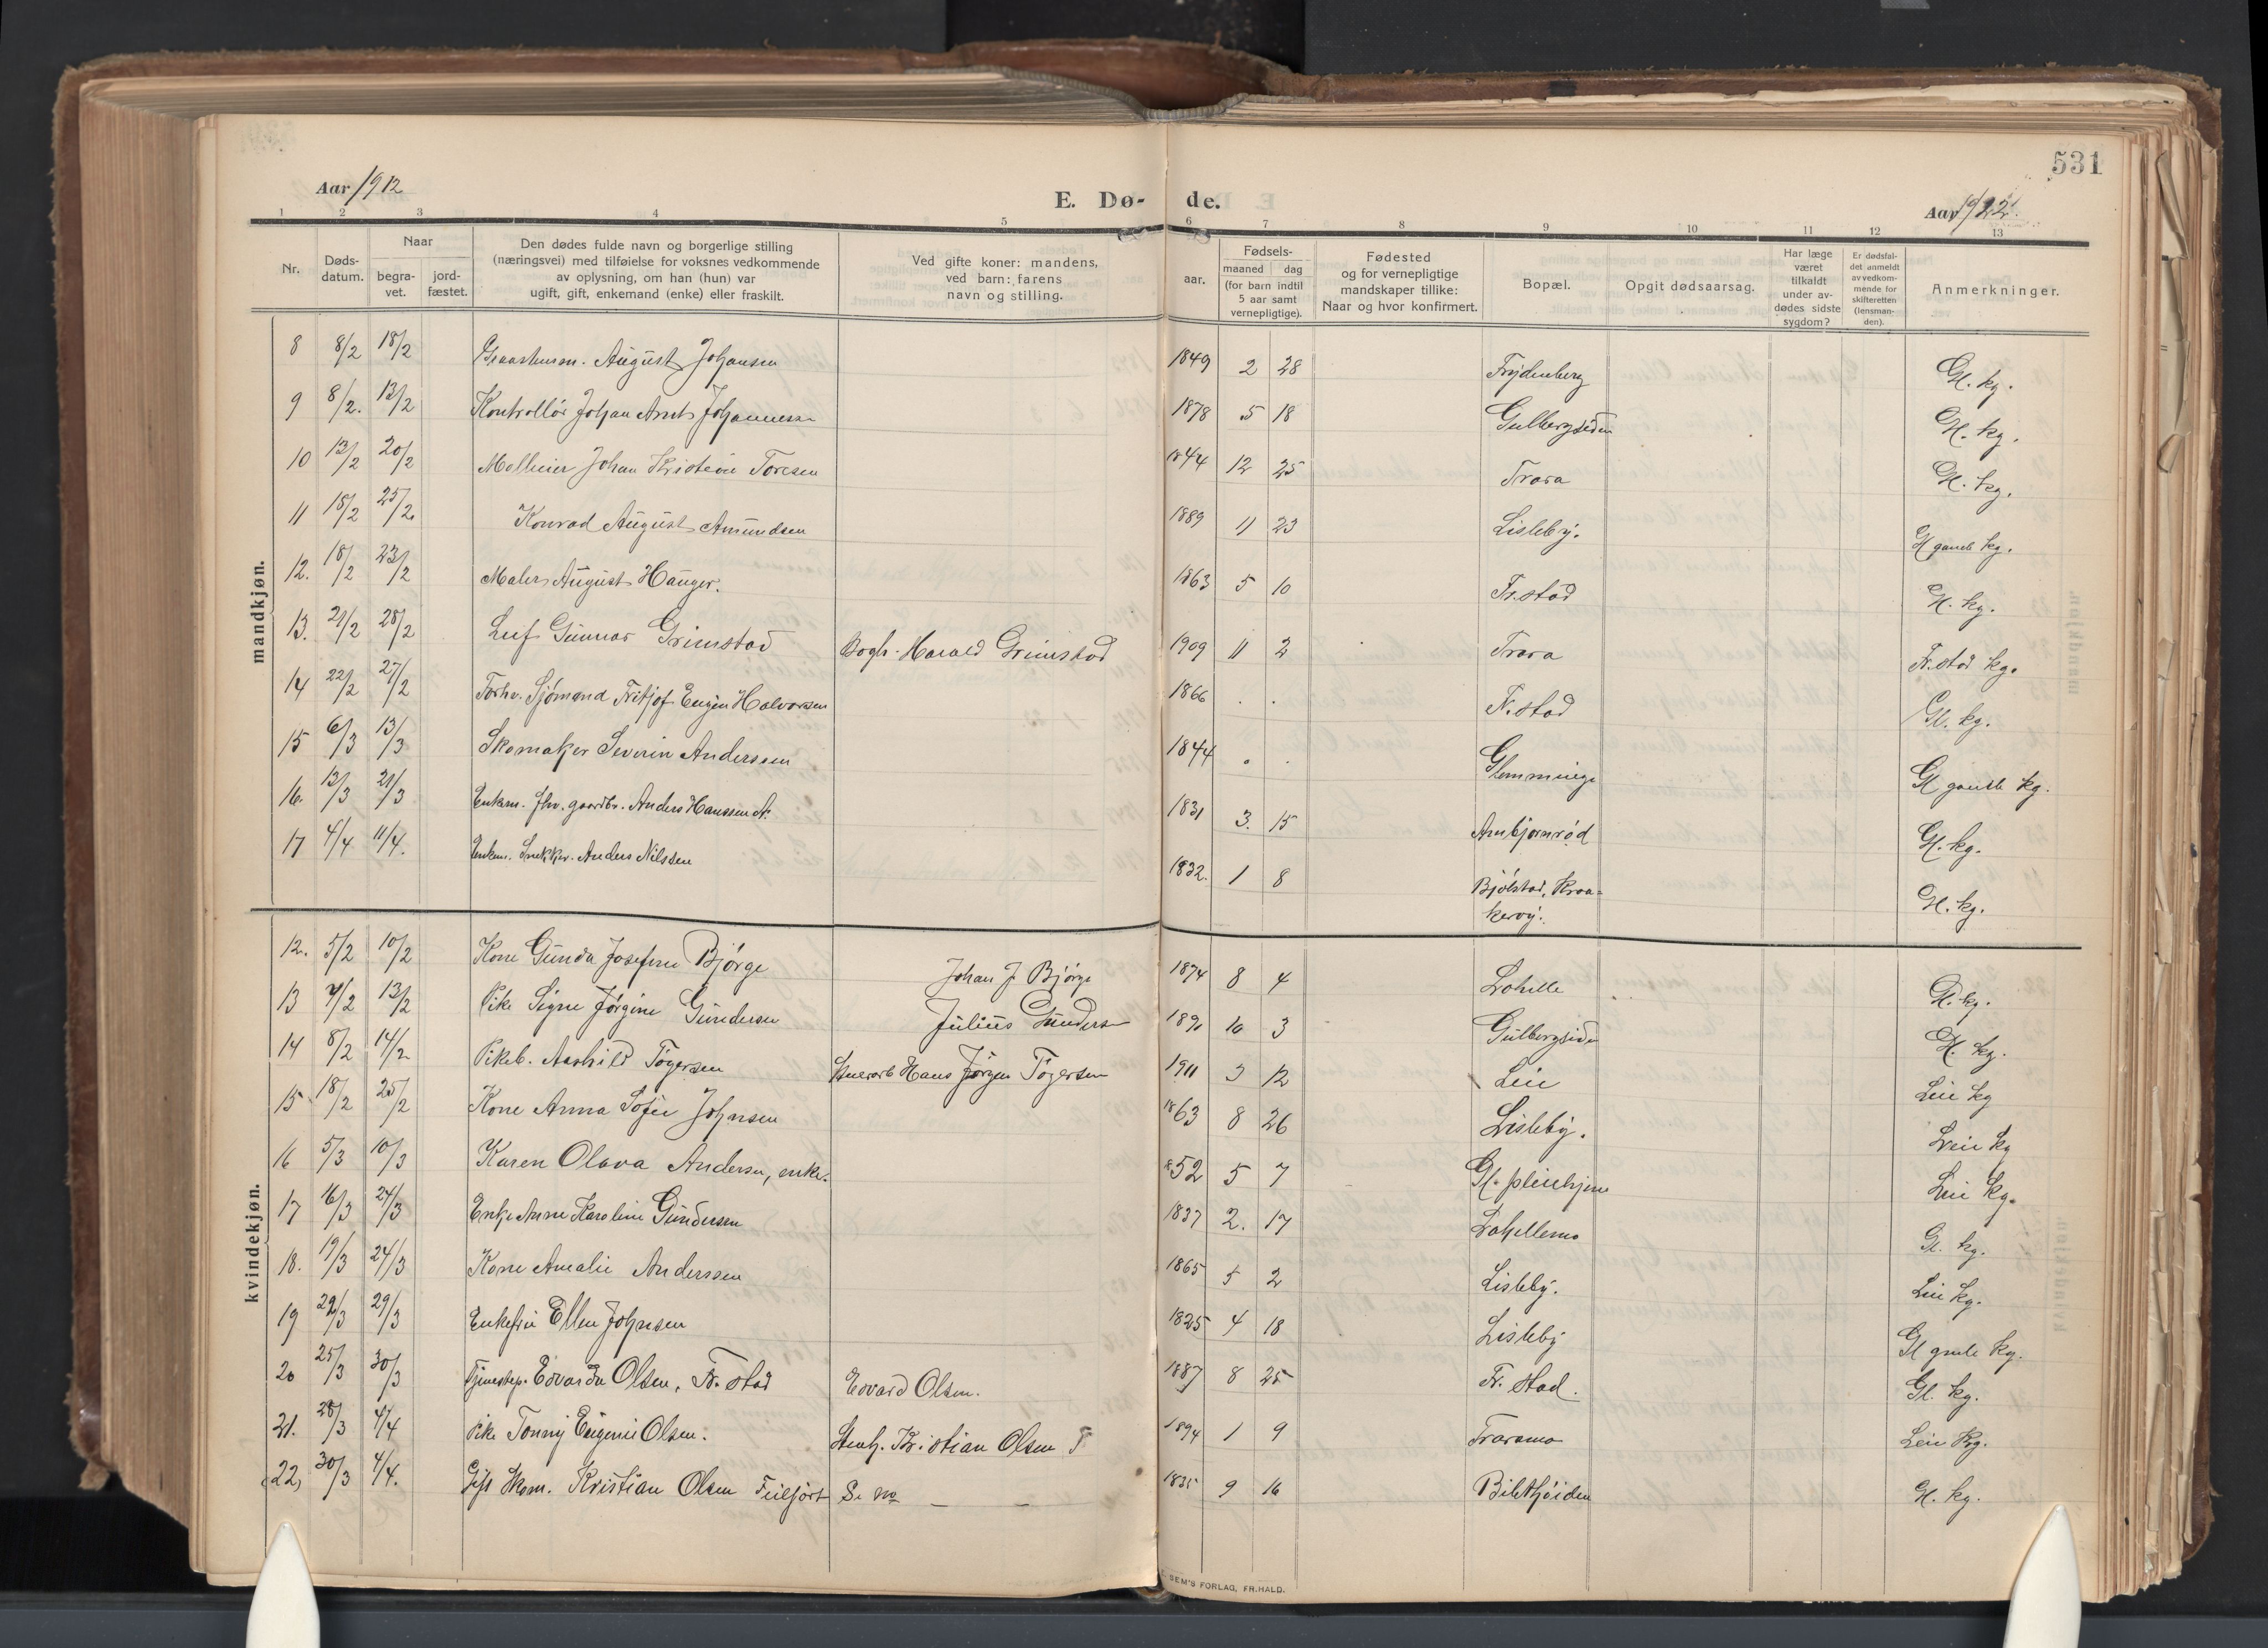 531
Aar 1912
E. Dø- de.
Aar 1912.
1 2 3 4 5 6 7 8 9 10 11 12 13
Nr.
Døds-
datum.
Naar
begra-
vet.
jord-
fæstet.
Den dødes fulde navn og borgerlige stilling
(næringsvei) med tilføielse for voksnes vedkommende
av oplysning, om han (hun) var
ugift, gift, enkemand (enke) eller fraskilt.
Ved gifte koner: mandens,
ved barn: farens
navn og stilling.
aar.
Fødsels-
maaned dag
(for barn indtil
5 aar samt
vernepligtige).
Fødested
og for vernepligtige
mandskaper tillike:
Naar og hvor konfirmert.
Bopæl.
Opgit dødsaarsag.
Har læge
været
tilkaldt
under av-
dødes sidste
sygdom?
Er dødsfal-
det anmeldt
av vedkom-
mende for
skifteretten
(lensman-
den).
Anmerkninger.
mandkjøn.
8 8/2 18/2 August Johansen 1849 2 28 Frydenberg Gl. kg.
9 8/2. 13/2 Kontrollør Johan Arnt Johannessen 1878 5 18 Gulbergsiden Gl. kg.
10 13/2 20/2 Johan Kristian Toresen 1844 12 25 Trara Gl. kg.
11 18/2 25/2 Konrad August Amundsen 1889 11 23 Lisleby. Gl gamle kg.
12. 18/2 23/2 Maler August Hauger. 1863 5 10 Fr.stad Gl. kg.
13. 21/2 28/2 Leif Gunnar Grimstad Bogh. Harald Grimstad 1909 11 2 Trara Fr.stad kg.
14 22/2 27/2 Forhv. Sjømand Fritjof Eugen Halvorsen 1866 . . Fr.stad Gl. kg.
15 6/3 13/3 Skomaker Severin Anderssen 1844 . . Glemminge Gl gamle kg.
16. 13/3 21/3 Enkem. fhv. gaardbr. Anders Hanssen A. 1831 3. 15 Arnbjørnrød Gl. kg.
17 4/4 11/4. Enkem. Snekker. Anders Nilssen 1832. 1 8 Bjølstad, Kraa-
kerøy. Gl. kg.
kvindekjøn.
12. 5/2 10/2 Kone Gunda Josefine Bjørge Johan J Bjørge 1874 8 4 Lahelle Gl. kg.
13 7/2 13/2 Pike Signe Jørgine Gundersen Julius Gundersen 1891 10 3 Gulbergsiden Gl. kg.
14 8/2 14/2 Pikeb. Aashild Tøgersen Hans Jørgen Tøgersen 1911 3 12 Leie Leie kg
15 18/2 25/2 Kone Anna Sofie Johnsen 1863 8 26 Lisleby. Leie kg
16 5/3 10/3 Karen Olava Andersen, enke. 1852 5 7 Gl. pleiehjem Leie kg.
17 16/3 24/3 Enke Anne Karoline Gundersen 1837 2. 17 Lahellemo Gl. kg.
18. 19/3 24/3 Kone Amalie Anderssen 1865 5 2 Lisleby. Leie kg.
19 22/3 29/3 Enkefru Ellen Johnsen 1825 4 18 Lisleby Gl gamle kg.
20 25/3 30/3 Tjenestep. Edvarda Olsen, Fr.stad Edvard Olsen. 1887 8 25 Fr. stad. Gl. kg.
21. 28/3 4/4 Pike Tonny Eugenie Olsen. Stenh. Kristian Olsen 1894 1 9 Traramo Leie kg.
22, 30/3 4/4. Gift Skom. Kristian Olsen Feilført Se no — — 1835 9 16 Bibthøiden Gl. kg.
SEM'S FORLAG, FR.HALD.